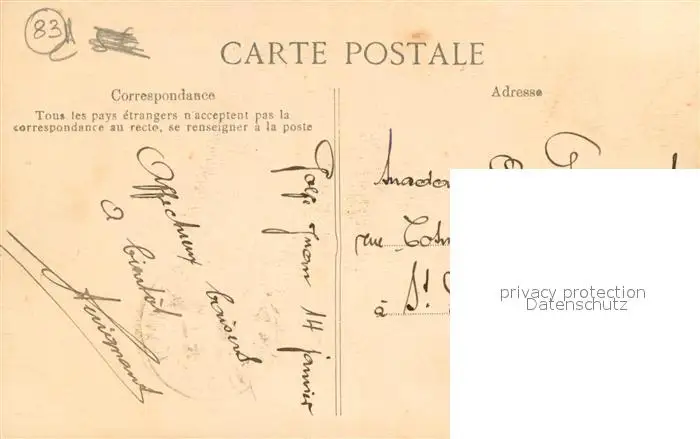 83
CARTE POSTALE
Correspondance
Tous les pays étrangers n'acceptent pas la
correspondance au recto, se renseigner à la poste
Adresse
Golfe Juan 14 janvier
Affectueux baisers
A bientôt
rue
à St
privacy protection
Datenschutz